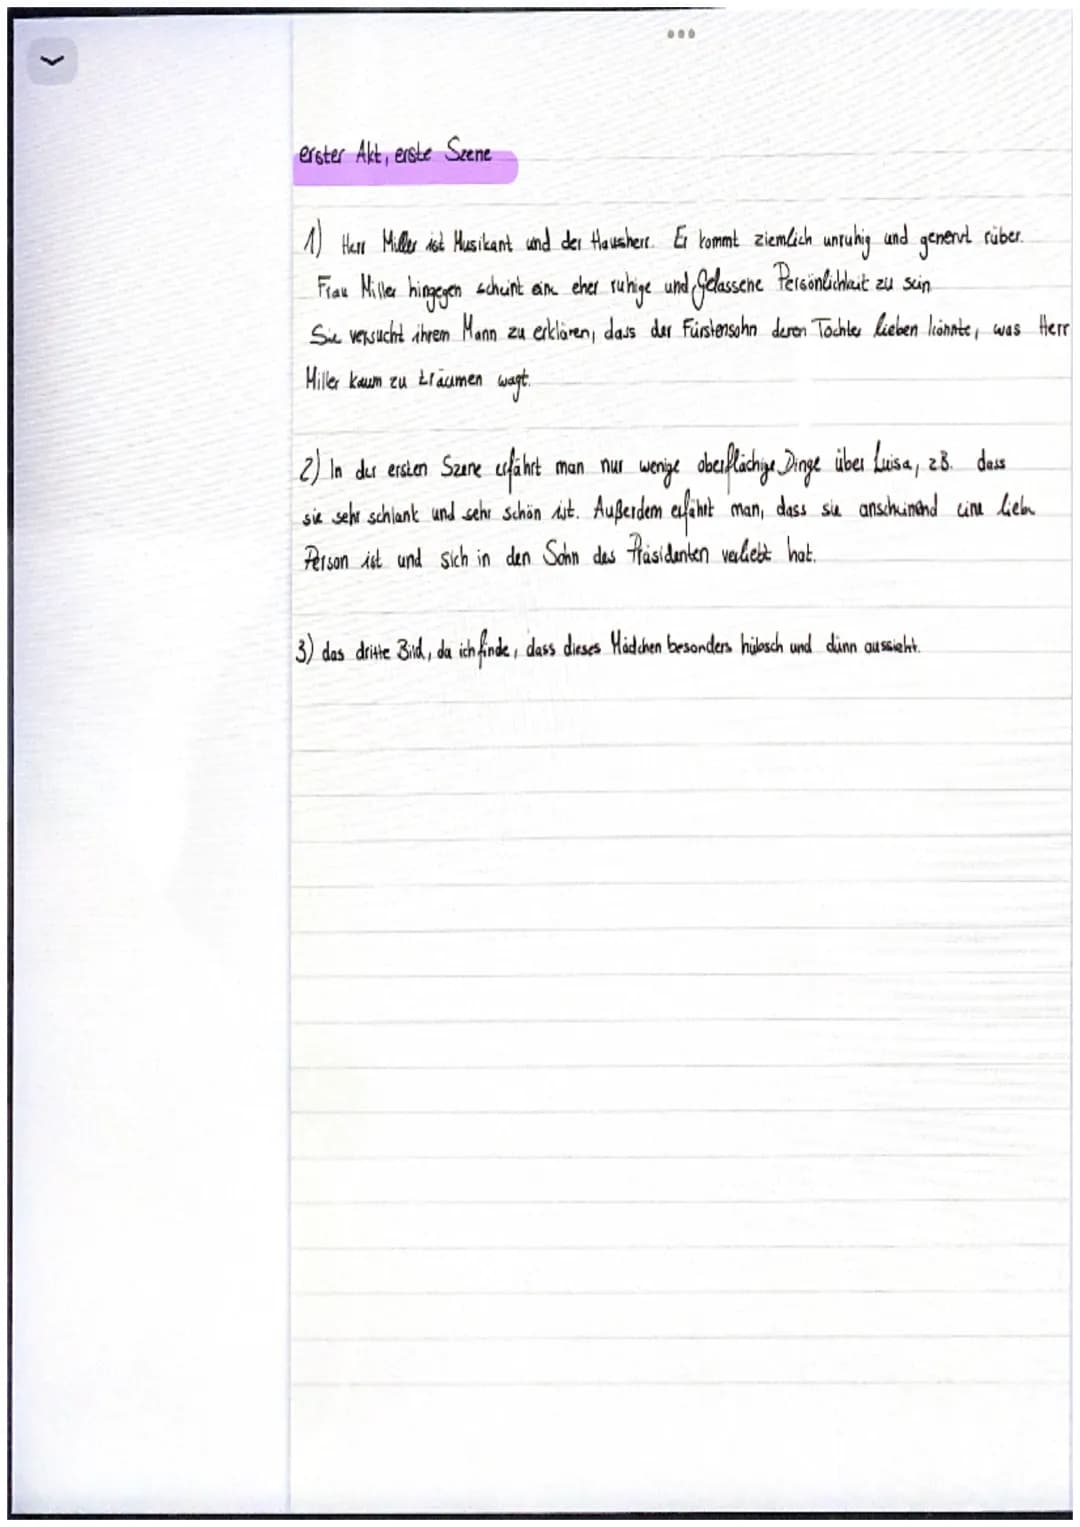 erster Akt, erste Szene
1) Herr Miller ist Musikant und der Hausherr. Er kommt ziemlich unruhig und genervt rüber.
Frau Miller hingegen scheint eine eher ruhige und Gelassene Persönlichkeit zu sein
Sie versucht ihrem Mann zu erklären, dass der Fürstensohn deren Tochter lieben könnte, was Herr
Miller kaum zu träumen wagt.
2) In der ersten Szene erfährt man nur wenige oberflächige Dinge über Luisa, zB. dass
sie sehr schlank und sehr schön ist. Außerdem erfährt man, dass sie anscheinend eine liebe
Person ist und sich in den Sohn des Präsidenten verliebt hat.
3) das dritte Bild, da ich finde, dass dieses Mädchen besonders hübsch und dünn aussieht.